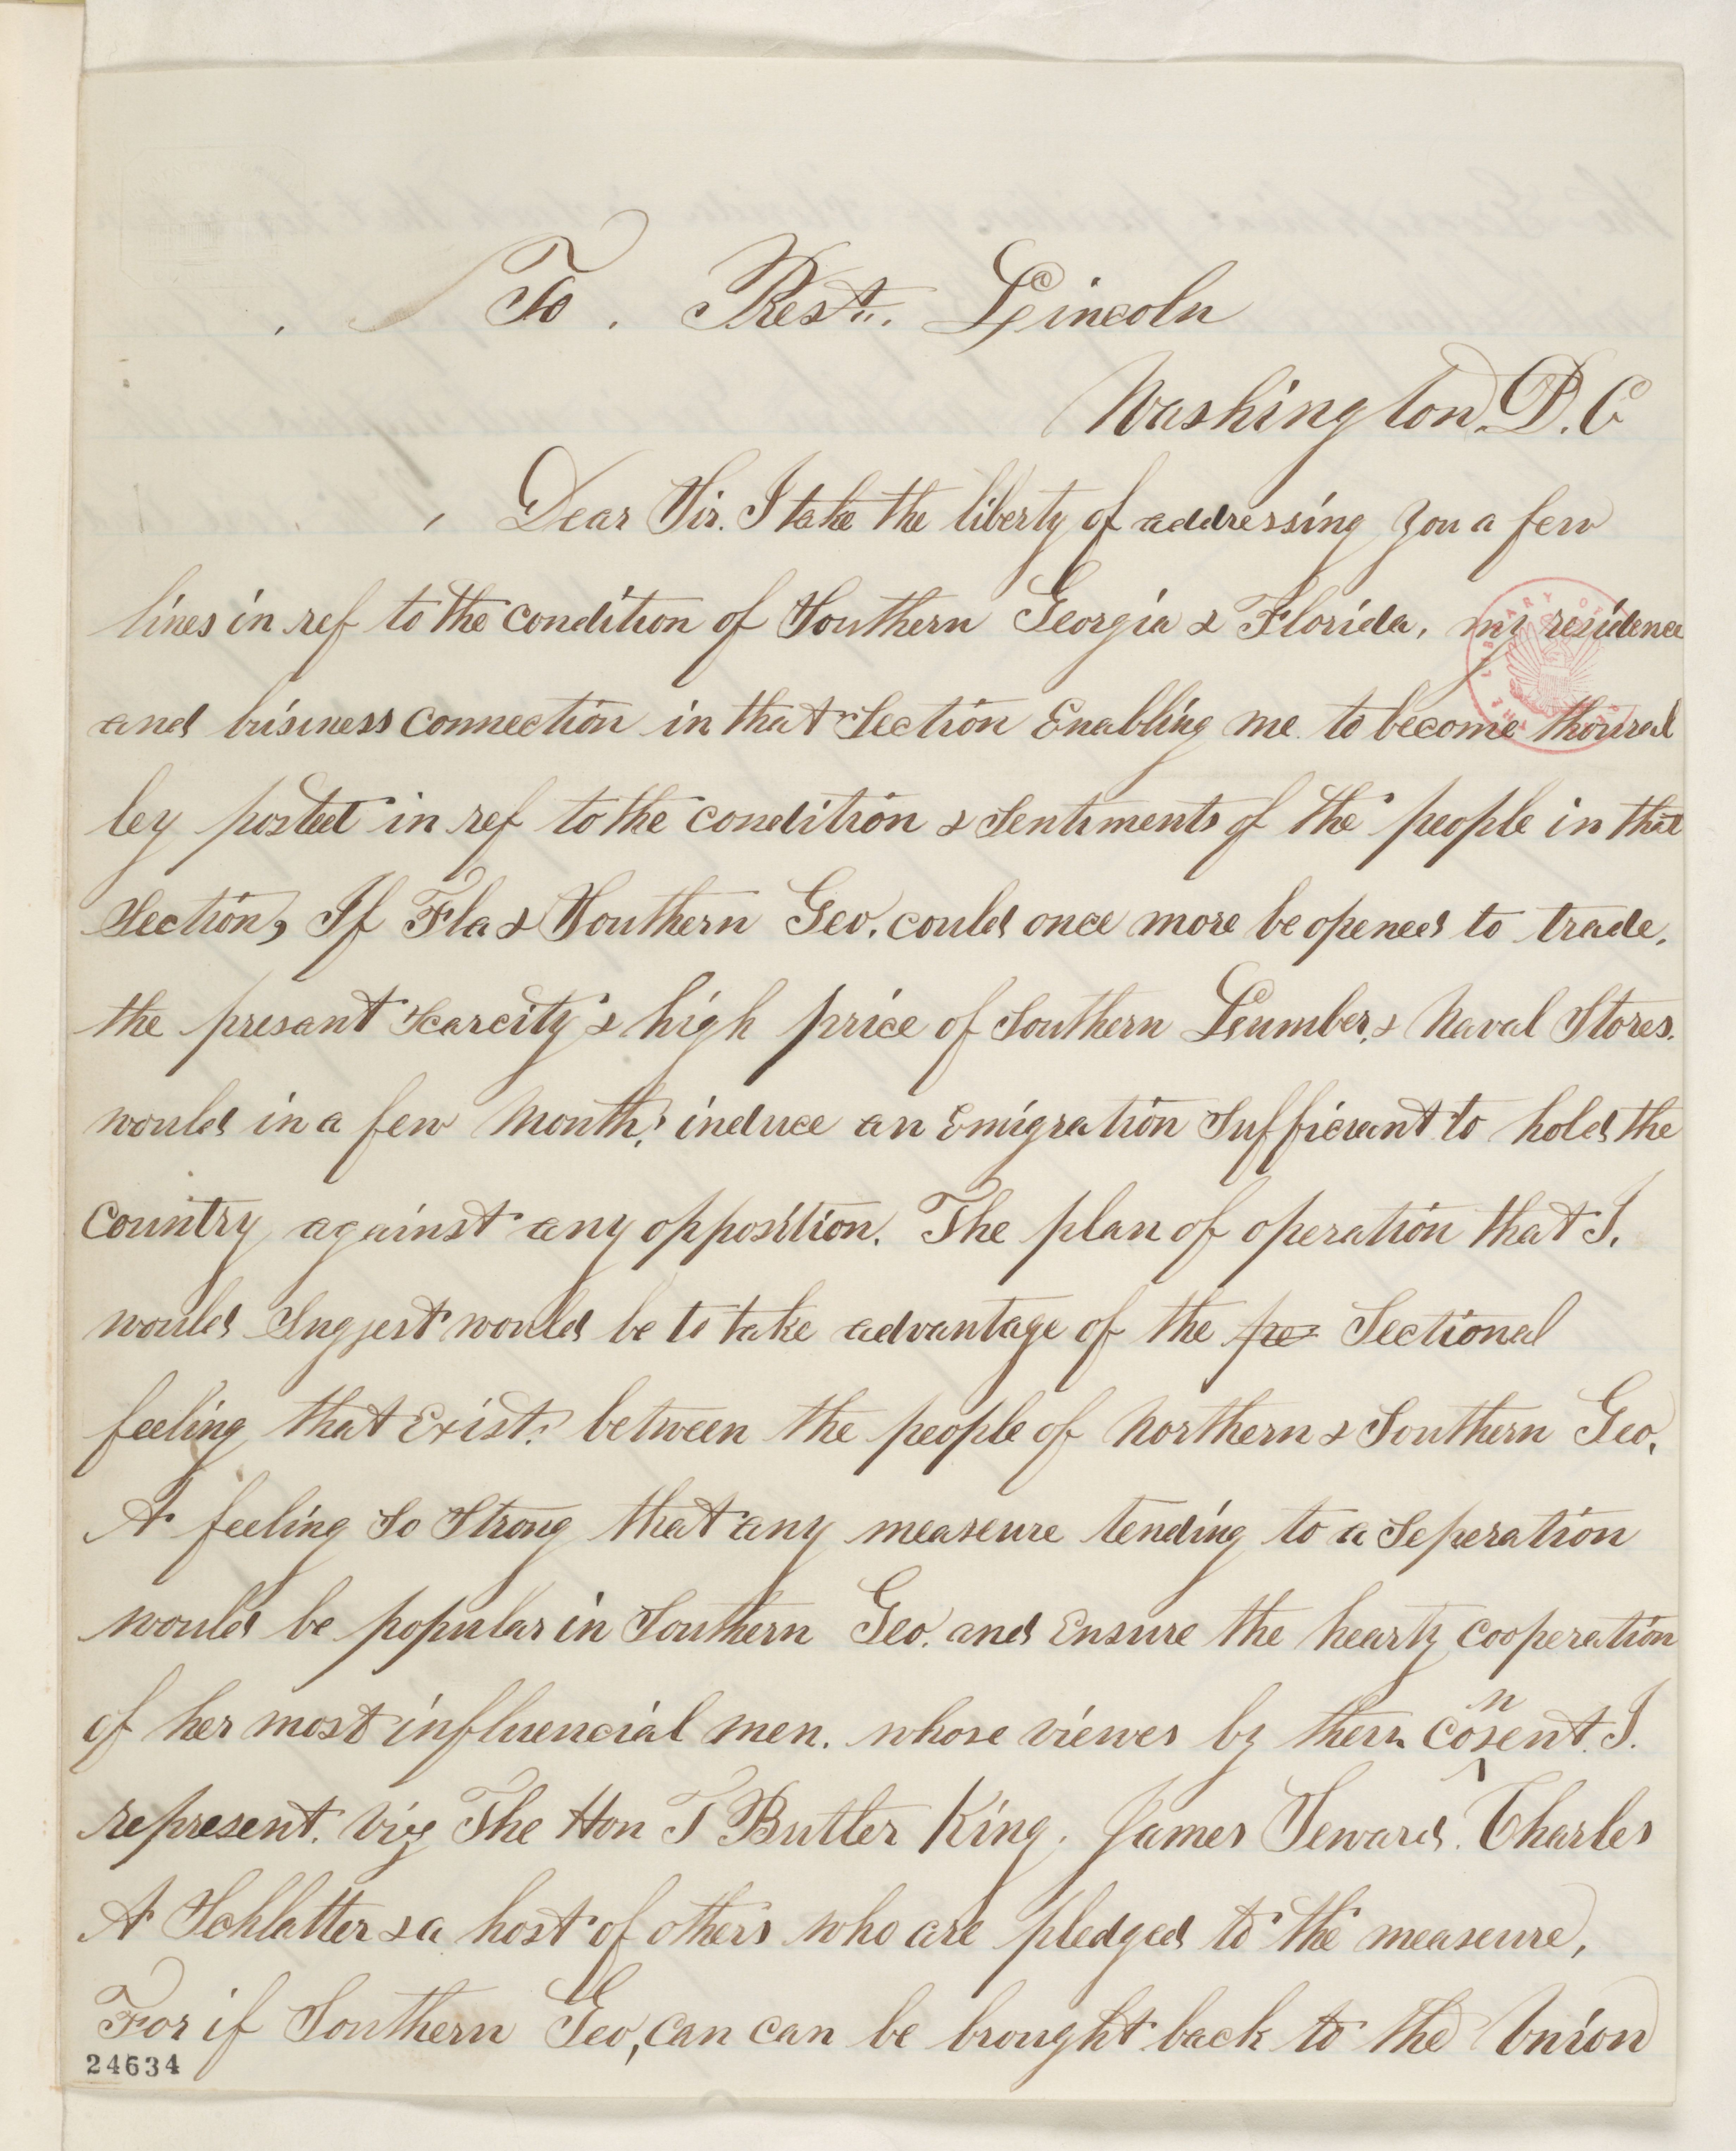 To. Prest. Lincoln
Washington. D. C
Dear Sir. I take the liberty of addressing you a few
lines in ref to the condition of Southern Georgia & Florida, my residence
and business connection in that Section Enabling me to become thoural
ley posted in ref to the condition & Sentiments of the people in that
Section, If Fla & Southern Geo. could once more be opened to trade.
the presant Scarcity & high price of Southern Lumber, & Naval Stores.
would in a few Months induce an Emigration Sufficiant to hold the
Country against any opposition. The plan of operation that I.
would Sugjest would be to take advantage of the pe Sectional
feeling that Exists between the people of Northern & Southern Geo.
A feeling So Strong that any measeure tending to a Seperation
would be popular in Southern Geo. and Ensure the hearty cooperation
of her most influencial men. whose viewes by there consent. I.
represent. viz The Hon T Butler King. James Seward. Charles
A Schlatter & a host of others who are pledged to the measeure,
For if Southern Geo, can can be brought back to the Union
24634